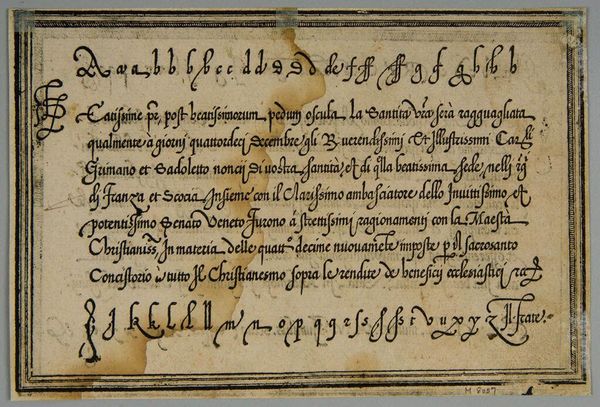 A a a a b b b b c c d d d d d de f ff ff g f g h h h
Eatissime pr̃, post beatissimorum pedum oscula la Santita vr̃a serà ragguagliata
qualmente à giorni quattordeci decembre, gli R. verendissimi et Illustrissimi Car.li
Grimano et Sadoletto noncij di vostra santità, et di q̃lla beatissima sede, nelli
di Franza et Scocia Insieme con il Clarissimo ambasciatore dello Invittissimo, et
potentissimo Senato Veneto furono à strettissimi ragionamenti con la Maestà
Christianiss. In materia delle quatt.o decine nuovamẽte imposte p̱ il sacrosanto
Concistorio ĩ tutto Il Christianesmo sopra le rendite de beneficij ecclesiastici
j j k k l l ll m n o p q q r s s s s t v u x x y z Il frate.
M 8007